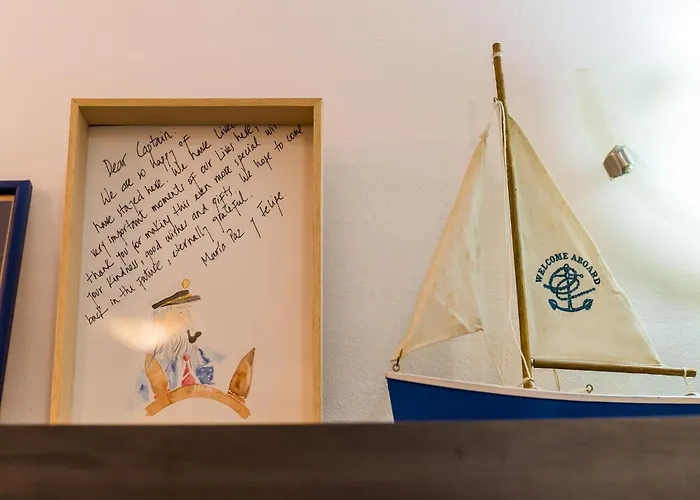 Dear Captain:
We are so happy of
have stayed here. We have lived
very important moments of our lifes here,
thank you for making this even more special with
your kindness, good wishes and gifts. We hope to come
back in the future, eternally grateful.
María Paz y Felipe.
WELCOME ABOARD